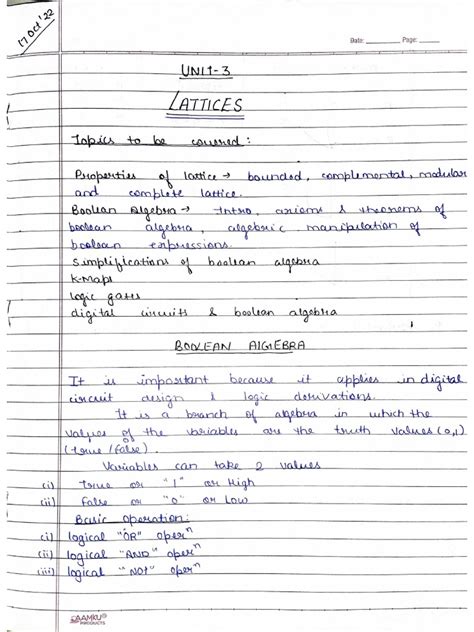 17 Oct '22
Date: Page:
UNIT-3
LATTICES
Topics to be covered :
Properties of lattice → bounded, complemental, modular
and complete lattice.
Boolean Algebra → Intro axioms & theorems of
boolean algebra, algebric manipulation of
boolean expressions.
Simplifications of boolean algebra
K-Maps
logic gates
digital circuits & boolean algebra
BOOLEAN ALGEBRA
It is important because it applies in digital
circuit design & logic derivations.
It is a branch of algebra in which the
values of the variables are the truth values (0,1)
(true/false).
Variables can take 2 values
(i) True or "1" or High
(ii) False or "0" or Low
Basic operation:
(i) logical "OR" operⁿ
(ii) logical "AND" operⁿ
(iii) logical "NOT" operⁿ
AAMKU
PRODUCTS